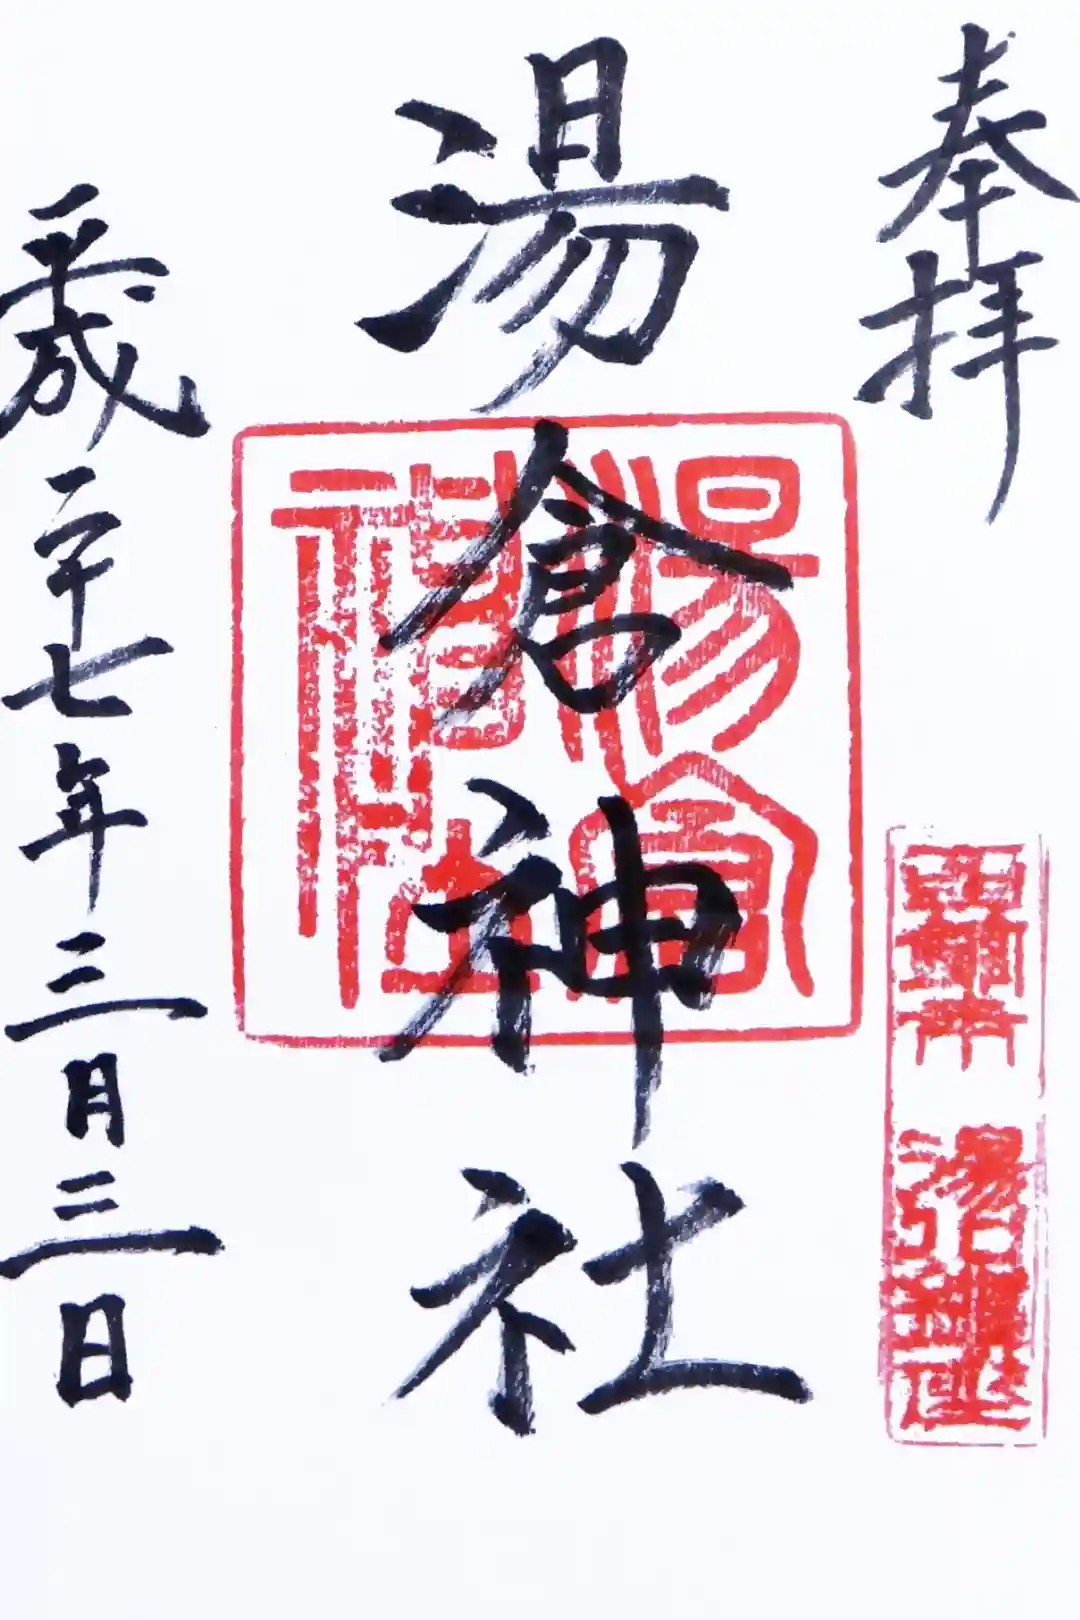 奉拝
湯倉神社
湯倉神社
平成二十七年三月三日